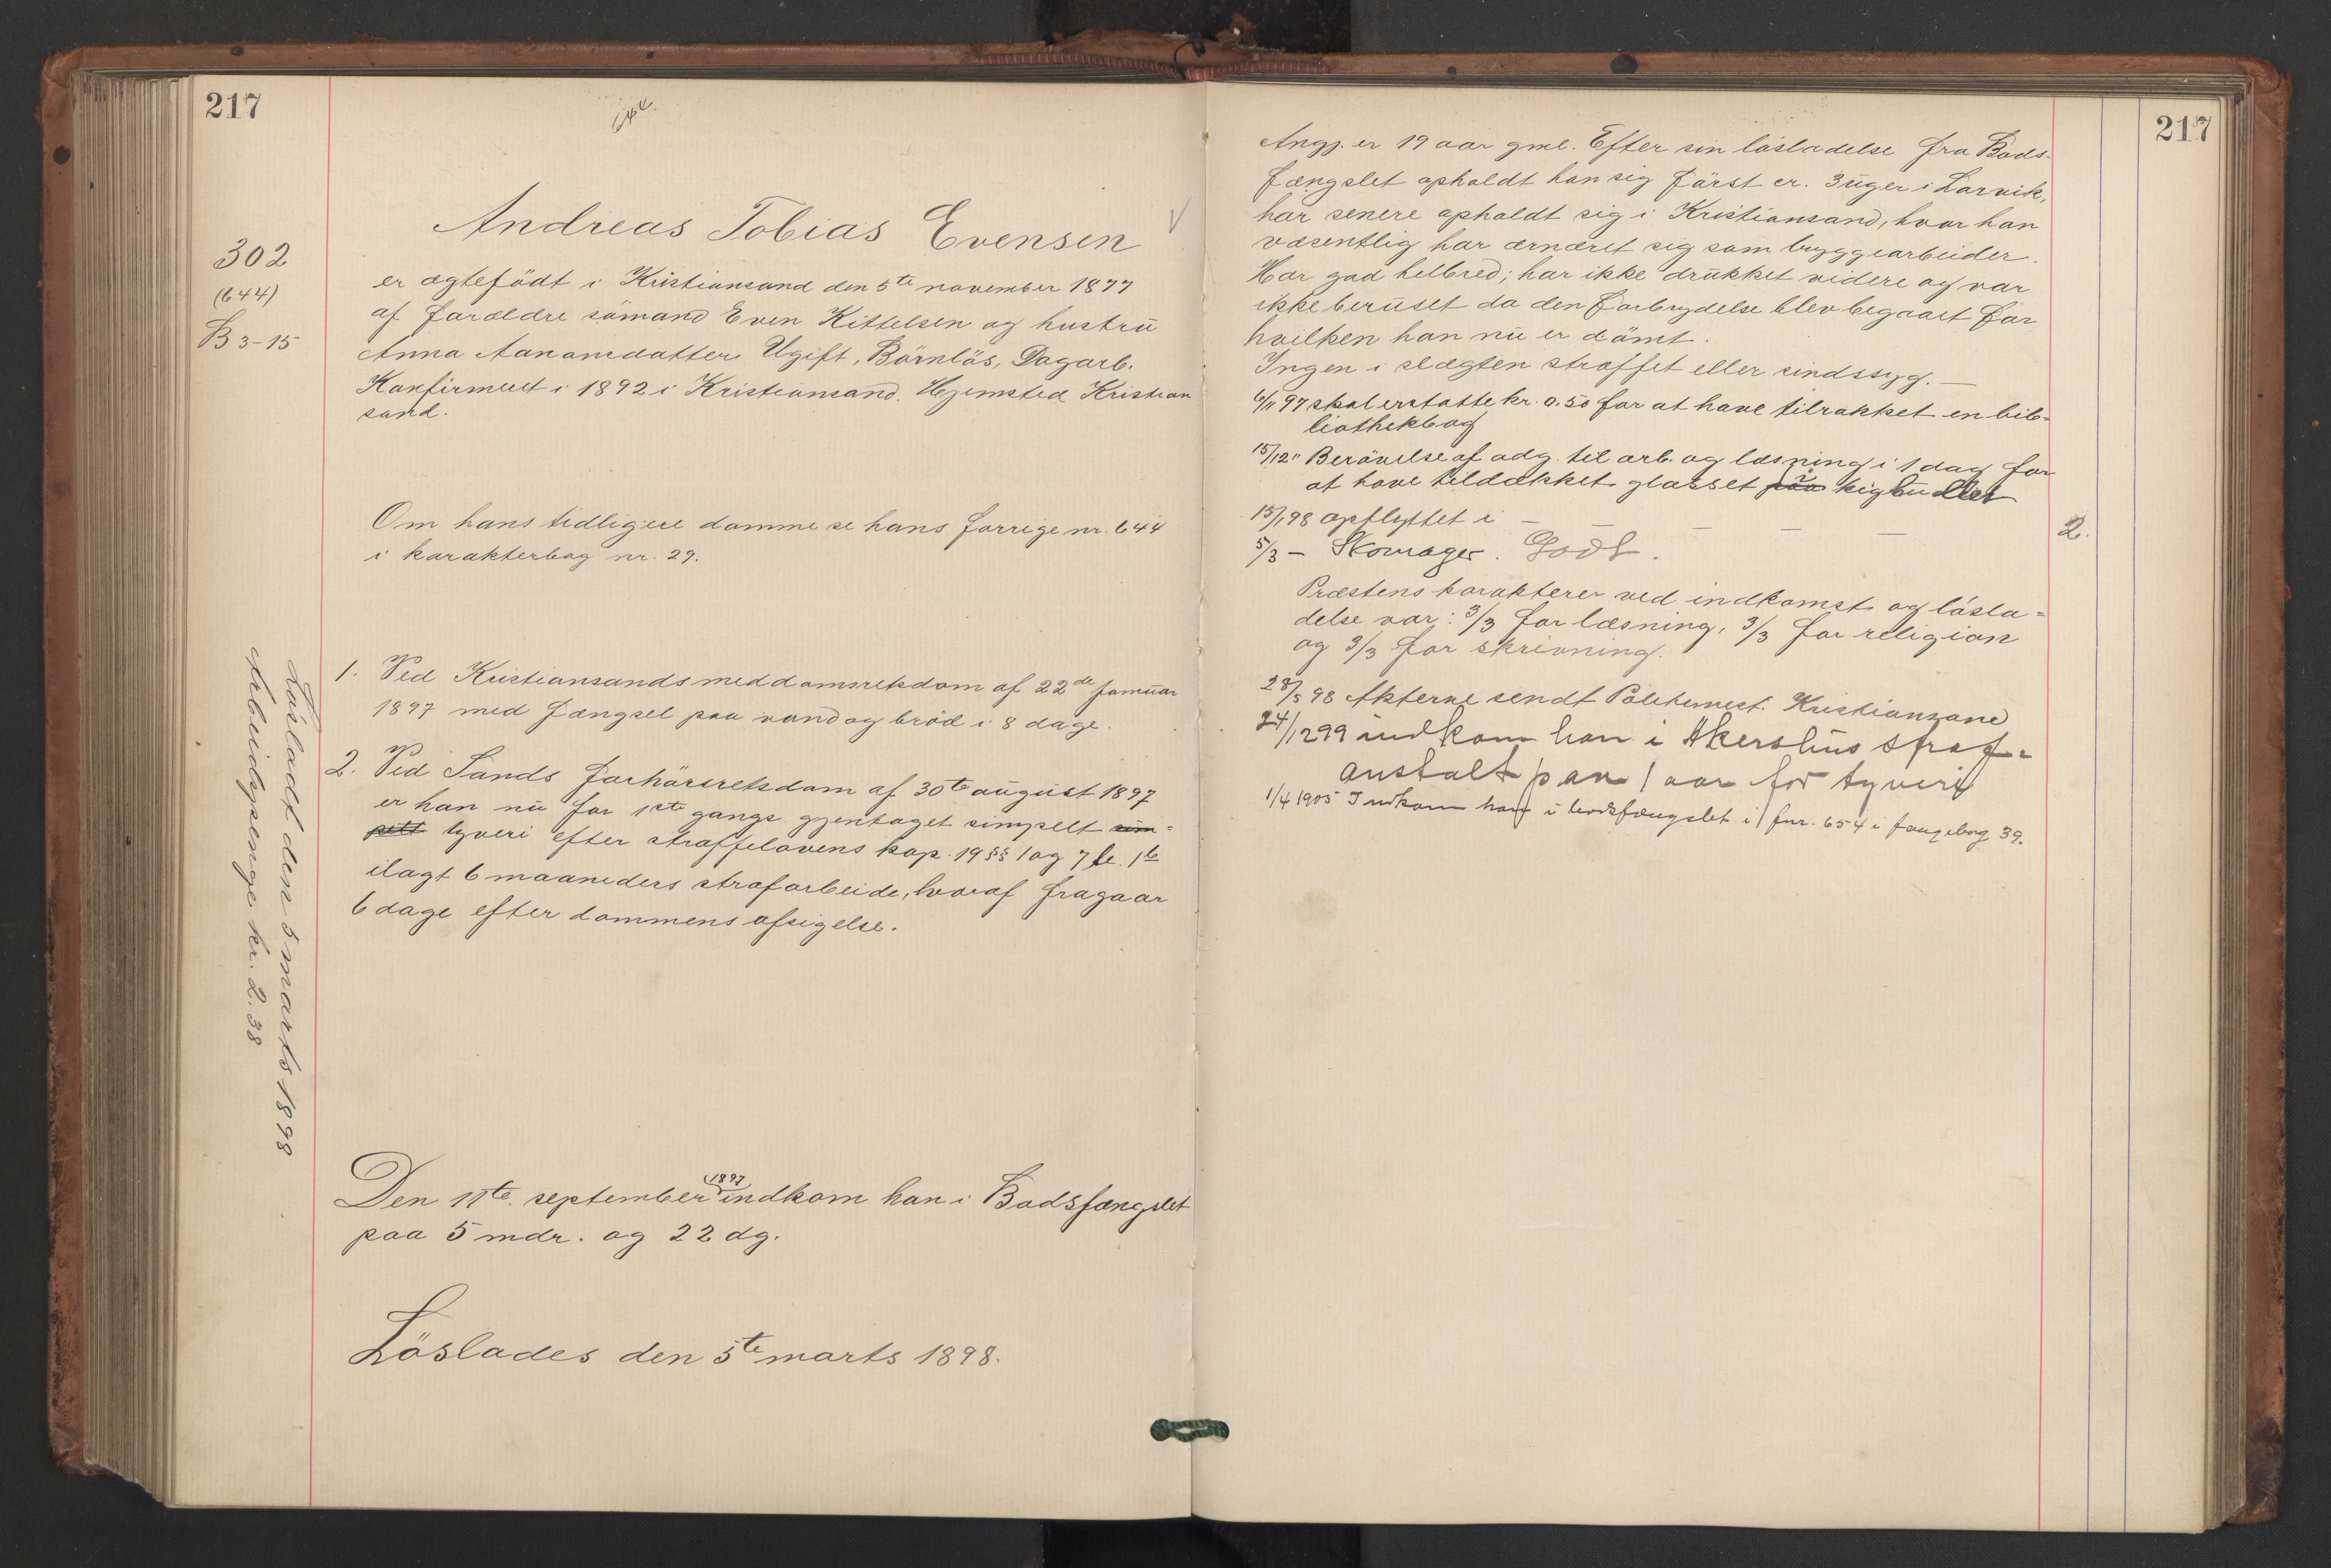 217
644.
302
(644)
B 3-15
Andreas Tobias Evensen
er ægtefödt i Kristiansand den 5te november 1877
af forældre sömand Even Kittelsen og hustru
Anna Aanonsdatter. Ugift, Börnlös, Dagarb.
Konfirmeret i 1892 i Kristiansand. Hjemsted Kristian
sand.
Om hans tidligere domme se hans forrige nr. 644
i karakterbog nr. 29.
1. Ved Kristiansands meddomsretsdom af 22de januar
1897 med fængsel paa vand og bröd i 8 dage.
2. Ved Sands forhörsretsdom af 30te august 1897
er han nu for 1ste gangs gjentaget simpelt sim=
pelt tyveri efter straffelovens kap. 19 §§ 1 og 7 le. 1te
ilagt 6 maaneders strafarbeide, hvoraf fragaar
6 dage efter dommens afsigelse.
Lösladt den 5 marts 1898
Arbeidspenge kr. 2.38
Den 11te september 1897 indkom han i Bodsfængslet
paa 5 mdr. og 22 dg.
Löslades den 5te marts 1898.
217
Angj. er 19 aar gml. Efter sin lösladelse fra Bods-
fængslet opholdt han sig först cr. 3 uger i Larvik,
har senere opholdt sig i Kristiansand, hvor han
væsentlig har ernæret sig som bryggearbeider.
Har god helbred; har ikke drukket videre og var
ikke beruset da den forbrydelse blev begaaet for
hvilken han nu er dömt.
Ingen i slægten straffet eller sindssyg. —
6/11 97 skal erstatte kr. 0.50 for at have tilrakket en bib-
liothekbog
15/12 " Berövelse af adg. til arb. og læsning i 1 dag for
at have tildækket glasset paa i kighullet
15/1 98 opflyttet i — — — — 2.
5/3 — Skomager. Godt.
Præstens karakterer ved indkomst og lösla=
delse var: 3/3 for læsning, 3/3 for religion
og 3/3 for skrivning.
28/5 98 Akterne sendt Politimest. Kristiansand
24/12 99 indkom han i Akershus straf=
anstalt paa 1 aar for tyveri
1/4 1905 Indkom han i bodsfængslet i fnr. 654 i fangebog 39.